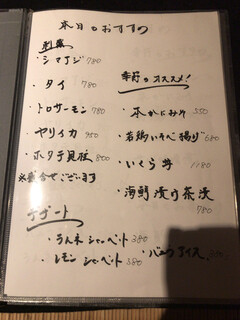 本日のおすすめ
刺身
・シマアジ 780
・タイ 780
・トロサーモン 780
・ヤリイカ 980
・ホタテ貝柱 800
※盛合せでございます
幸村のオススメ！
・本かにみそ 550
・若鶏いそべ揚げ 680
・いくら丼 1180
・海朝漬け茶漬 780
デザート
・ラムネシャーベット 380
・レモンシャーベット 380
・バニラアイス